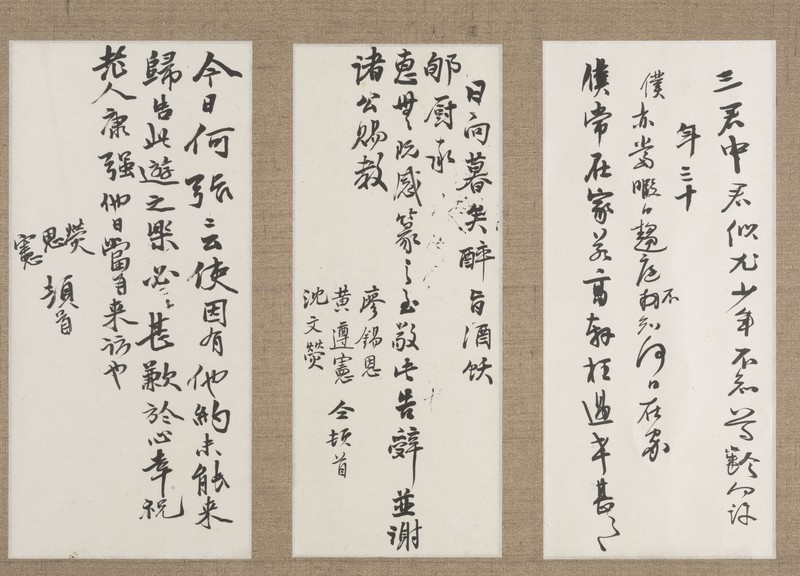 三君中君似尤少年不知尊齡可許
年三十
僕亦當暇日趨庭不知何日在家
僕常在家若高軒枉過幸甚々
日向暮矣醉旨酒飫
郇厨承
惠無既感篆之至敬此告辭並謝
諸公賜教
廖錫恩
黄遵憲 仝頓首
沈文熒
今日何張二云使因有他約未能来
歸告此遊之樂必甚歉於心幸祝
老人康强他日當自来訪也
熒
恩 頓首
憲